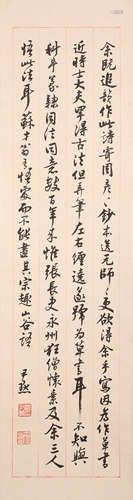 余既追韻作此詩寄周彥〻鈔本送元師〻更欲得余手寫因為作草書
近時士大夫罕得古法但弄筆左右纏遶遂號為草書耳不知與
科斗篆隸同法同意數百年來惟張長史永州狂僧懷素及余三人
悟此法耳蘇才翁有悟處而不能盡其宗趣山谷語 尹默